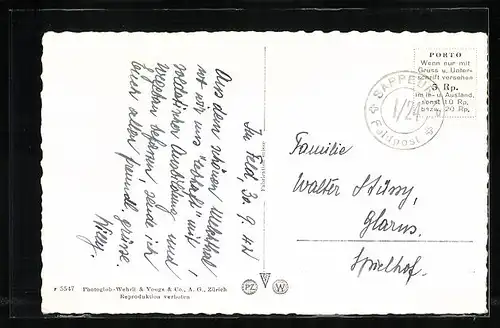 Im Feld, 30. 9. 42
Aus dem schönen Muotathal
wo wir uns "ertrafi" mit
soldatischer Ausbildung und
befassen sende ich
Euch allen freundl. grüsse.
Willy.
PORTO
Wenn nur mit
Gruss u. Unter-
schrift versehen
5 Rp.
im In- u. Ausland,
sonst 10 Rp.
bezw. 20 Rp.
SAPPEUR
1/24
Feldpost
Familie
Walter Stüssy,
Glarus.
Spielhof.
PZ W
r 5547 Photoglob-Wehrli & Vouga & Co., A. G., Zürich
Reproduktion verboten